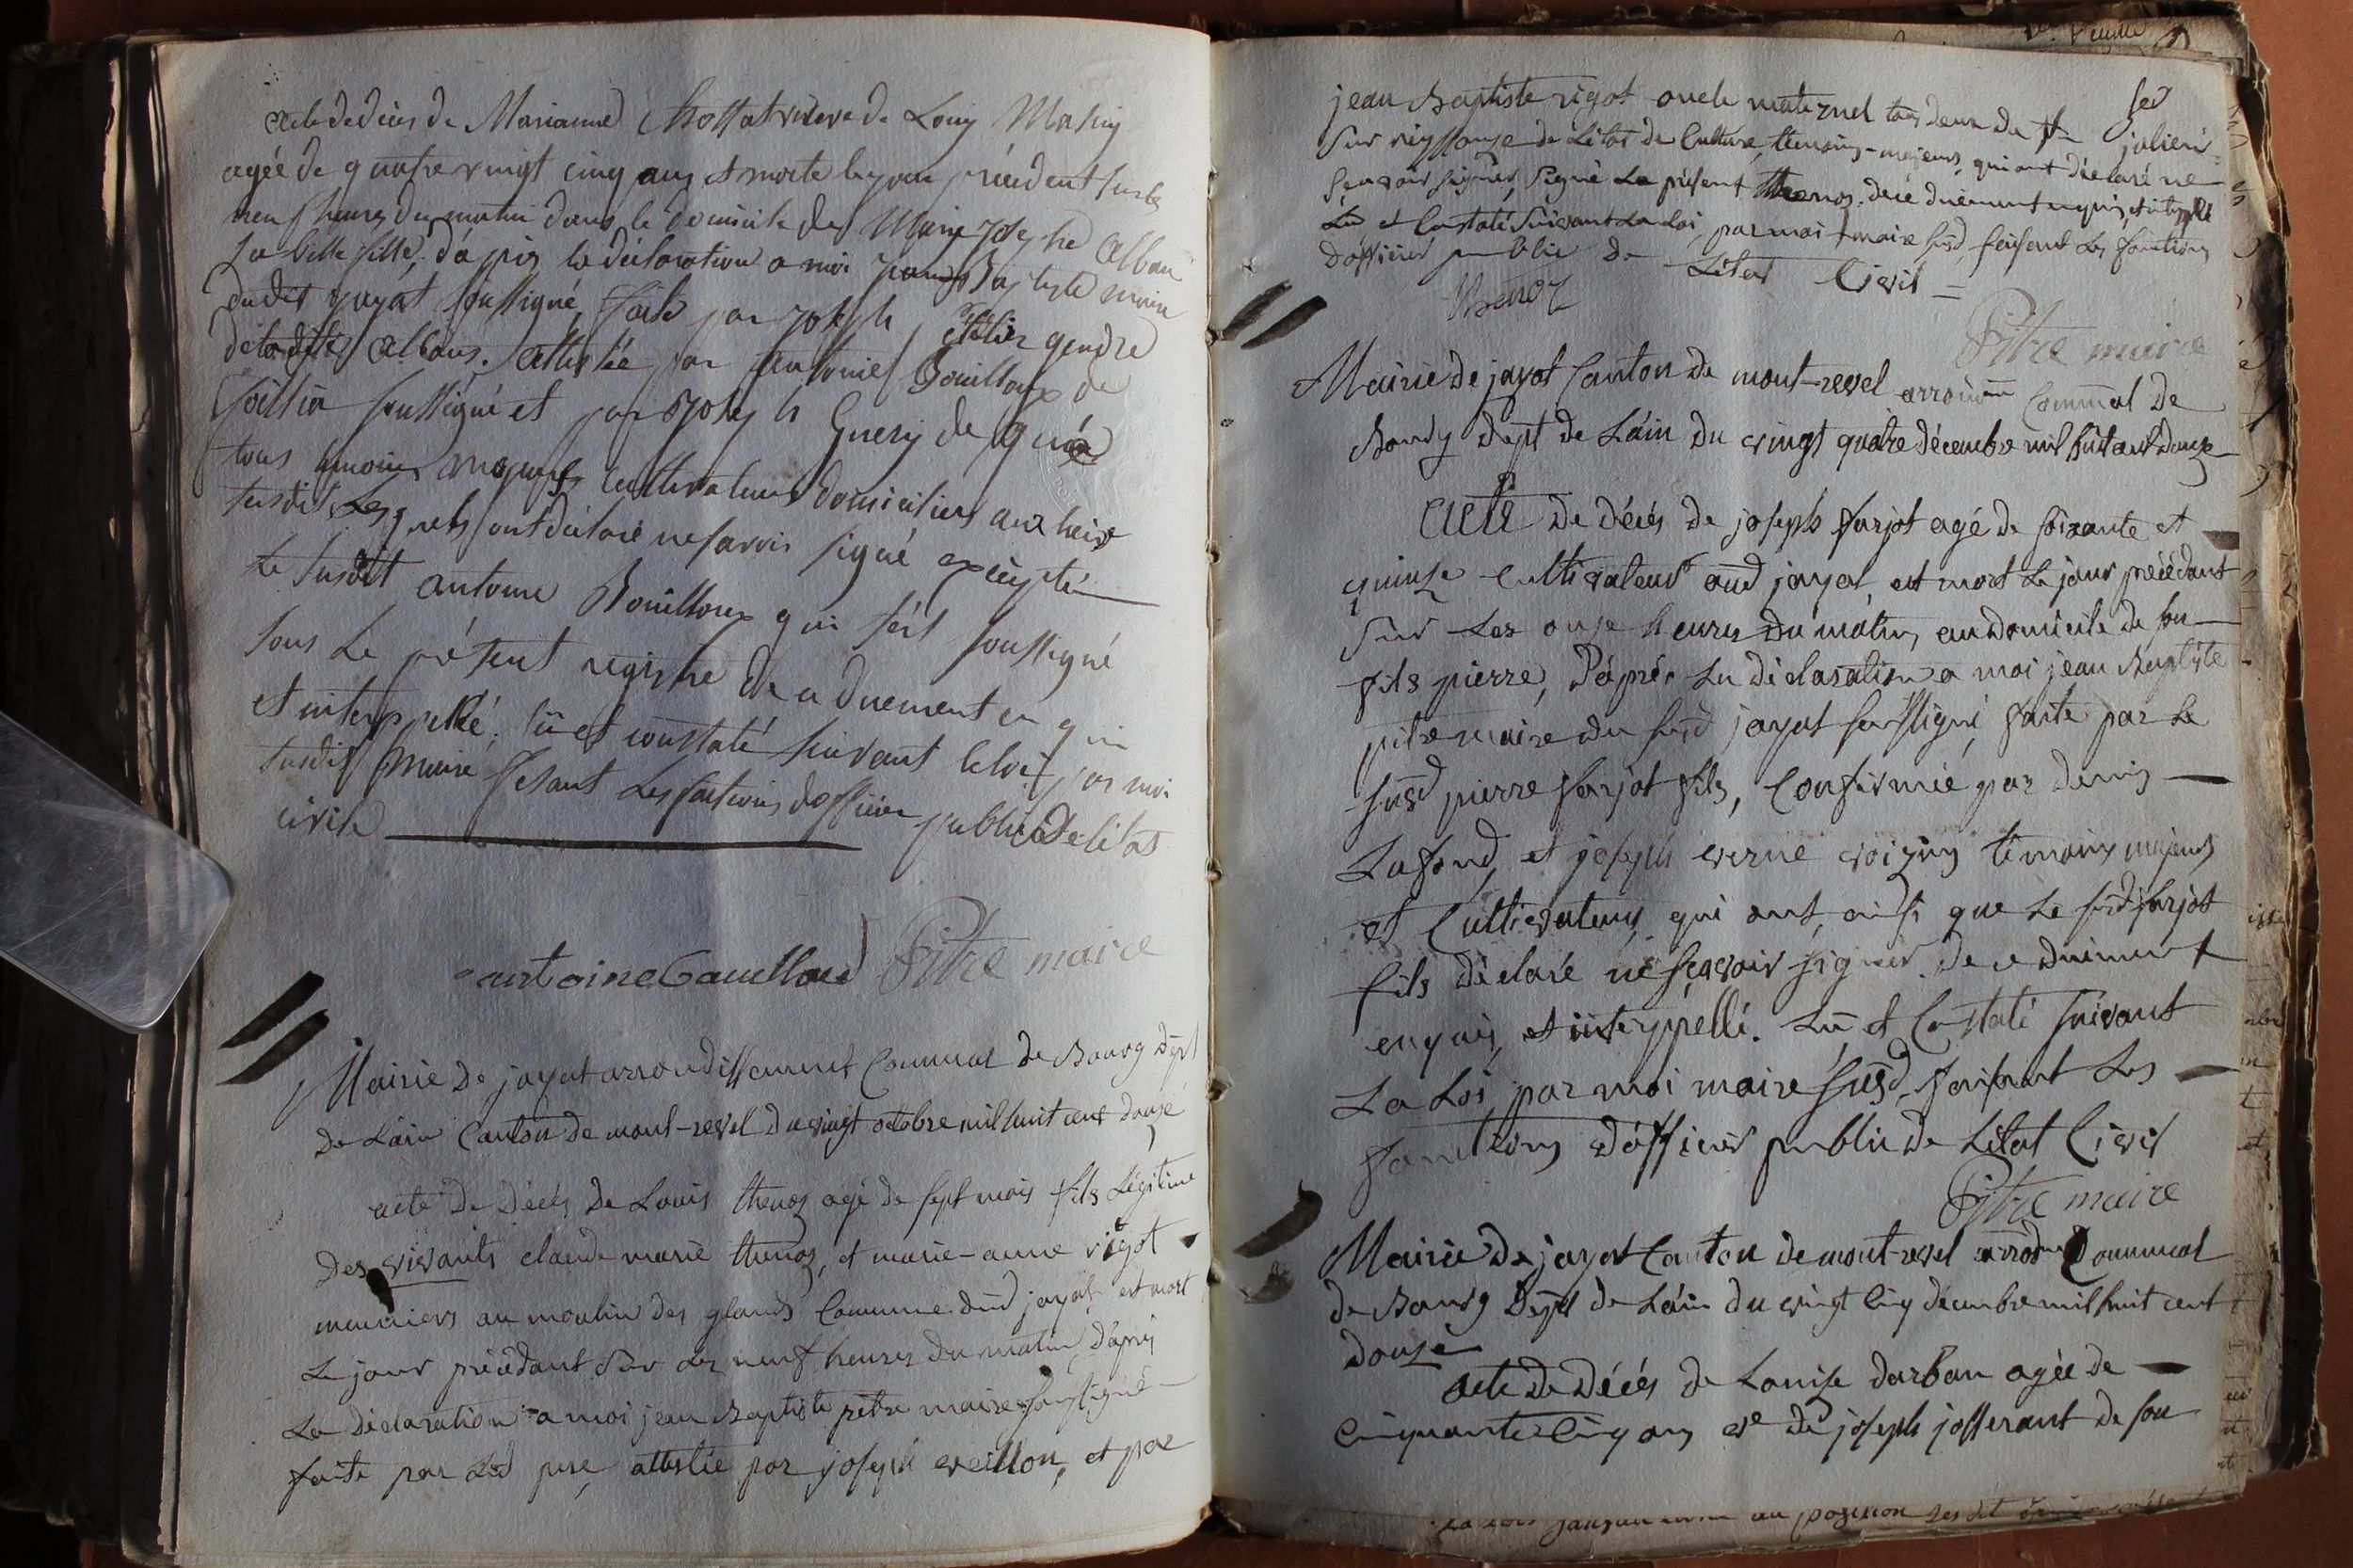 acte de décès de Marianne veuve de Louis
agée de quatre vingt cinq ans et morte le jour précédent sur les
neuf heures du matin dans le domicile de Marie Josephe Alban
sa belle fille, d'apprès la déclaration a moi Baptyste maire
dudit jayat soussigné, faite par Joseph gendre
de la dite Albans. attestée par Antoine Bouilloux de
soussigné et par Joseph Guery de
tous témoins majeurs cultivateurs domiciliers aux lieux
susdits Lesquels ont déclaré ne savoir signé excépté
le susdit antoine Bouilloux qui s'est soussigné
sous le présent registre de ce duement enquis
et interppellé; lû et constaté suivant la loi par moi
susdit maire fesant les foctions d'officier public de l'état
civile
antoine Bouilloud Pitre maire
Mairie de jayat arrondissement Communal de Bourg dept
de Lain Canton de mont-revel du vingt octobre mil huit cent douze
acte de décès de Louis thenoz agé de sept mois fils Légitime
des vivants claude marie thenoz, et marie-anne rigot
meuniers au moulin des glands Commune dud jayat, est mort
Le jour précédant sur les neuf heures du matin, d'après
La déclaration a moi jean Baptiste pitre maire soussigné
faite par led pere, attestée par joseph veillon, et par
jean Baptiste rigot oncle maternel tous deux de St julien
sur reyssouze de Létat de Culture, témoins majeurs, qui ont déclaré ne
sçavoir signer, signé Le présent thenoz. de ce duement enquis, et interppellé
Lu et Constaté suivant La Loi, par moi maire susd, faisant Les fonctions
d'officier public de Létat Civil =
thenoz
Pitre maire
Mairie de jayat Canton de mont-revel arrondnt Communal de
Bourg dept de Lain du vingt quatre décembre mil huit cent douze
Acte de décès de joseph farjot agé de soixante et
quinze cultivateur aud jayat, est mort Le jour précédant
sur Les onze heures du matin, au domicile de son
fils pierre, d'après La déclaration a moi jean Baptiste
pitre maire du susd jayat soussigné, faite par Le
susd pierre farjot fils, Confirmée par denis
Lafond, et joseph verne voizins témoins majeurs
et Cultivateurs, qui ont, ainsi que Le susd farjot
fils déclaré ne sçavoir signer. de ce duement
enquis, et interppellé. Lu, et Constaté suivant
La Loi par moi maire susd, faisant Les
fonctions d'officier public de Létat Civil
Pitre maire
Mairie de jayat Canton de mont-revel arrond Communal
de Bourg Dept de Lain du vingt Cinq décembre mil huit cent
douze
acte de décès de Louise darban agée de
Cinquante Cinq ans ve de joseph josserant de son